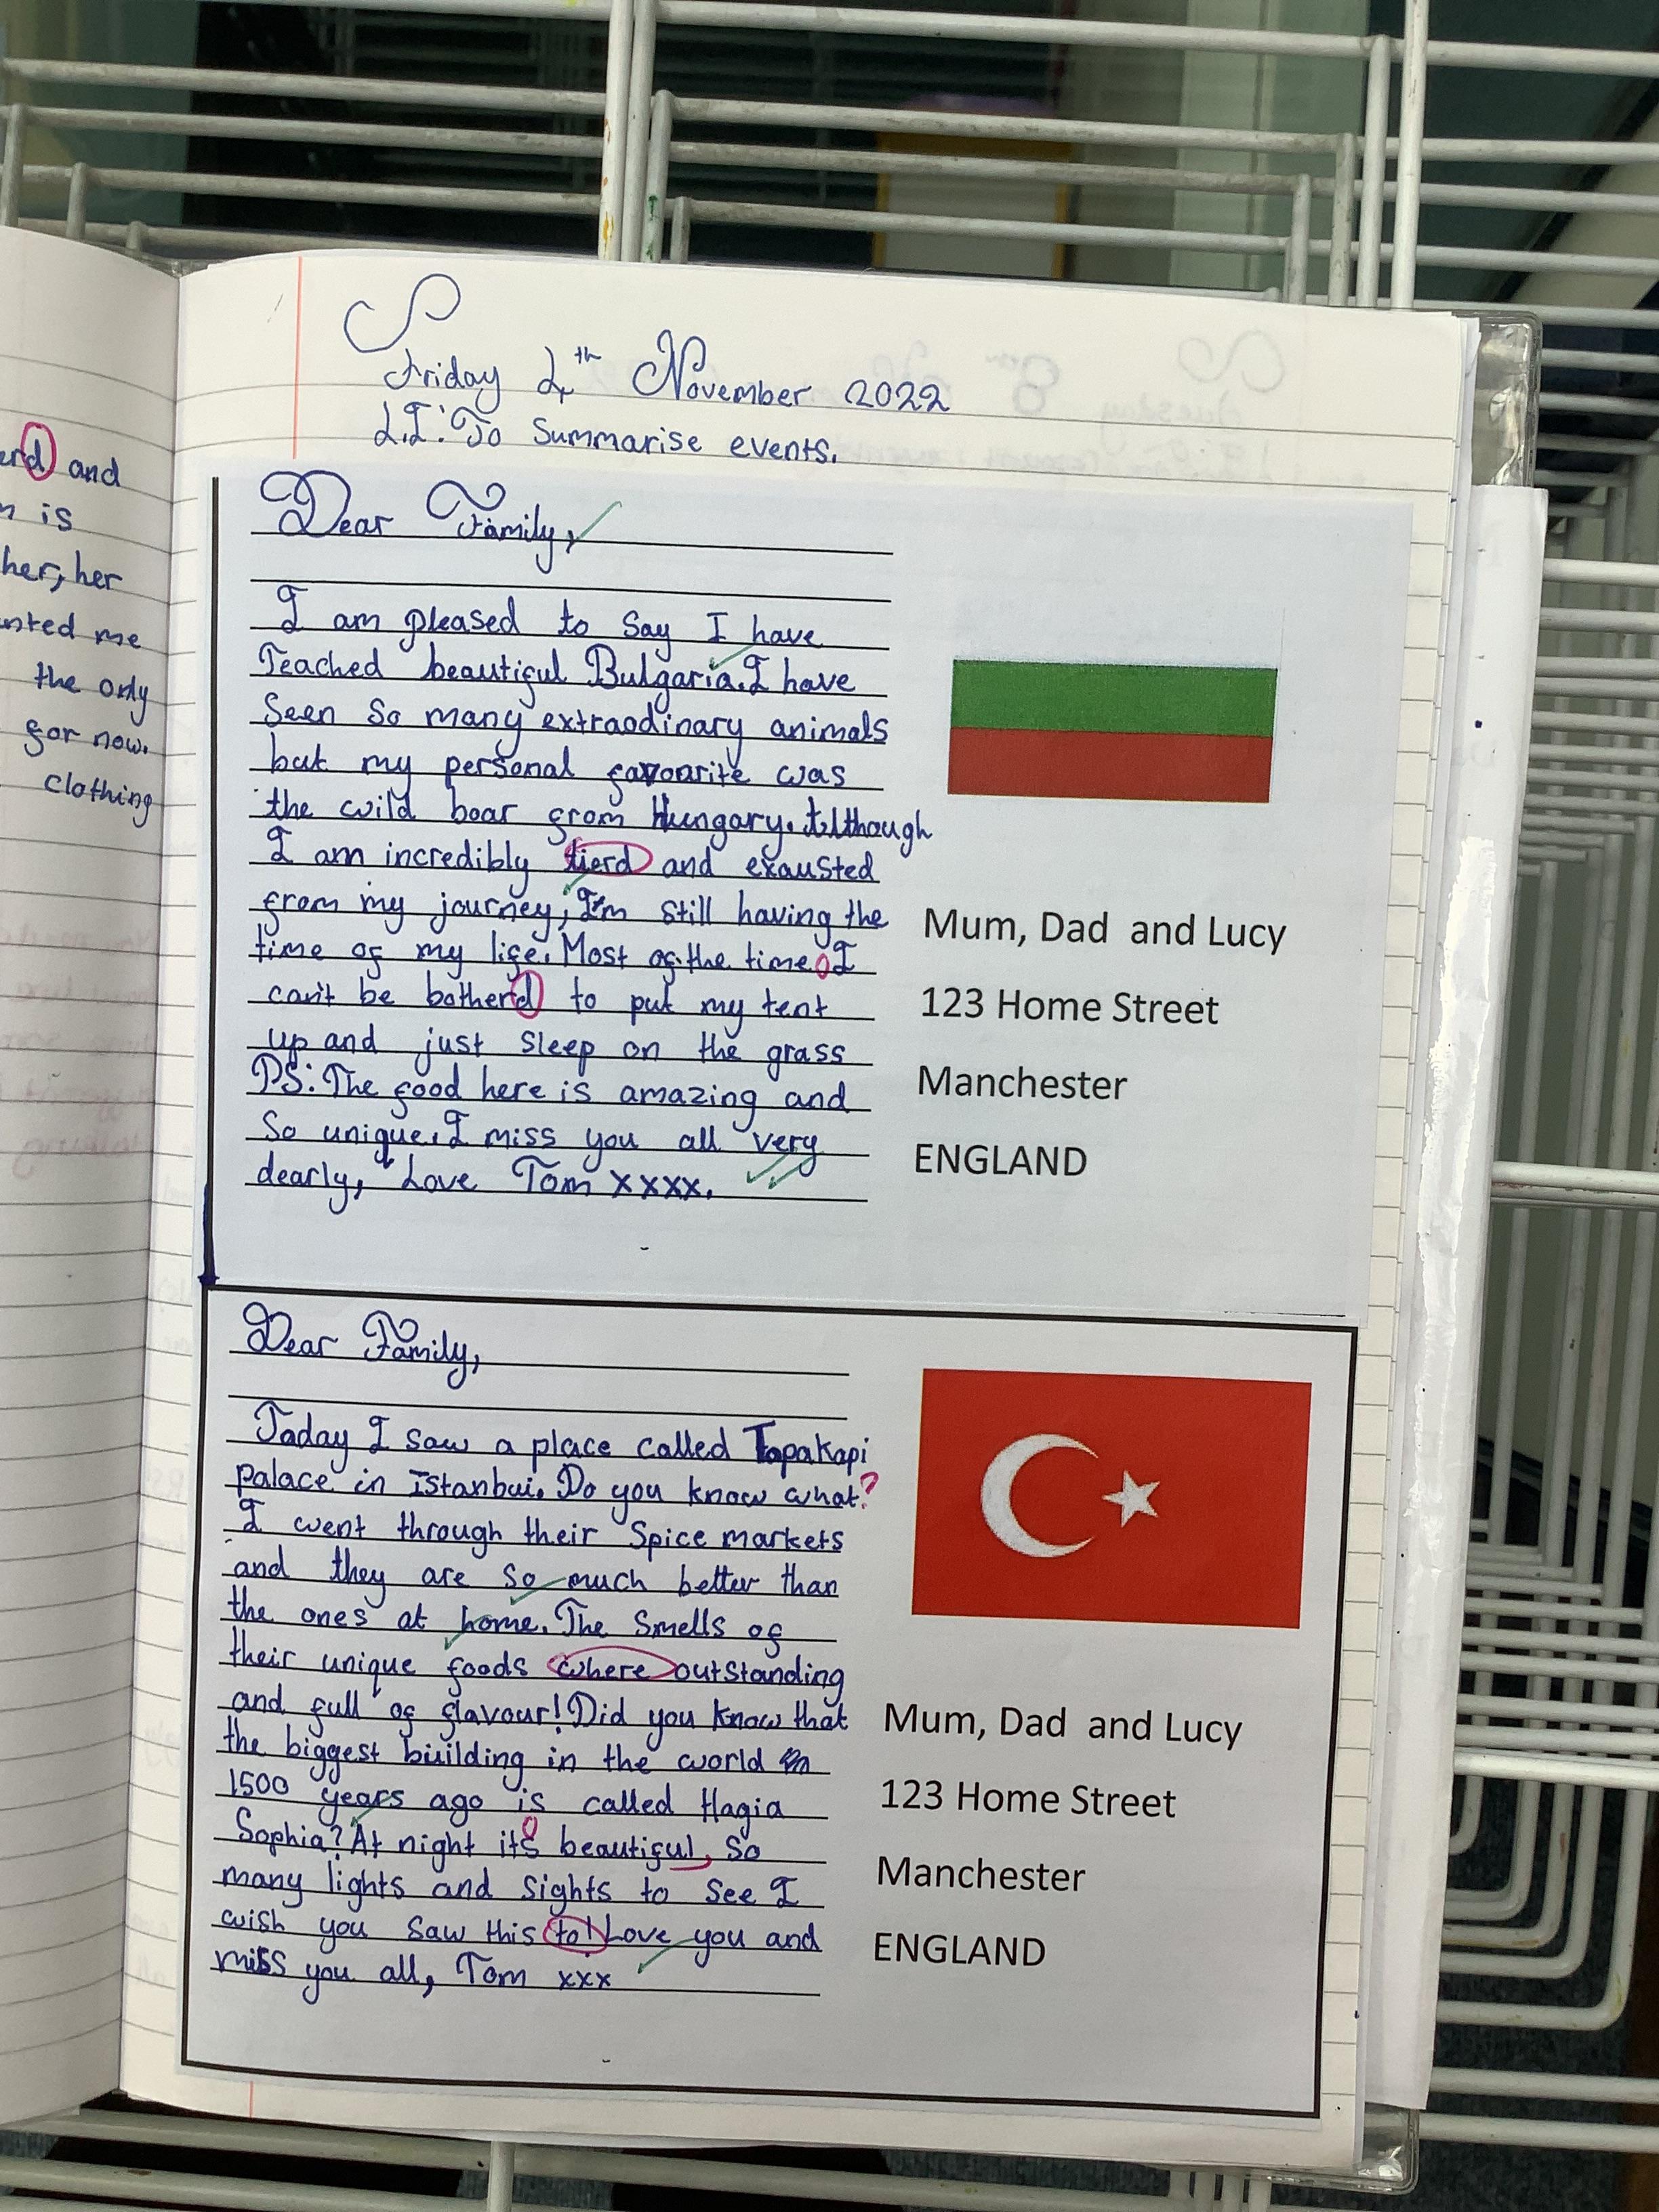 erd and
is
her, her
nted me
the only
for now.
clothing
Friday 4th November 2022
L.I: To Summarise events.
Dear Family,
I am pleased to say I have
reached beautiful Bulgaria. I have
seen so many extraodinary animals
but my personal favourite was
the wild boar from Hungary. Although
I am incredibly tierd and exausted
from my journey, I'm still having the
time of my life. Most of the time I
can't be botherd to put my tent
up and just sleep on the grass
PS: The food here is amazing and
so unique. I miss you all very
dearly, Love Tom xxxx.
Mum, Dad and Lucy
123 Home Street
Manchester
ENGLAND
Dear Family,
Today I saw a place called Topakapi
palace in Istanbul. Do you know what?
I went through their spice markets
and they are so much better than
the ones at home. The smells of
their unique foods where outstanding
and full of flavour! Did you know that
the biggest building in the world
1500 years ago is called Hagia
Sophia? At night its beautiful, so
many lights and sights to see I
wish you saw this to! Love you and
miss you all, Tom xxx
Mum, Dad and Lucy
123 Home Street
Manchester
ENGLAND